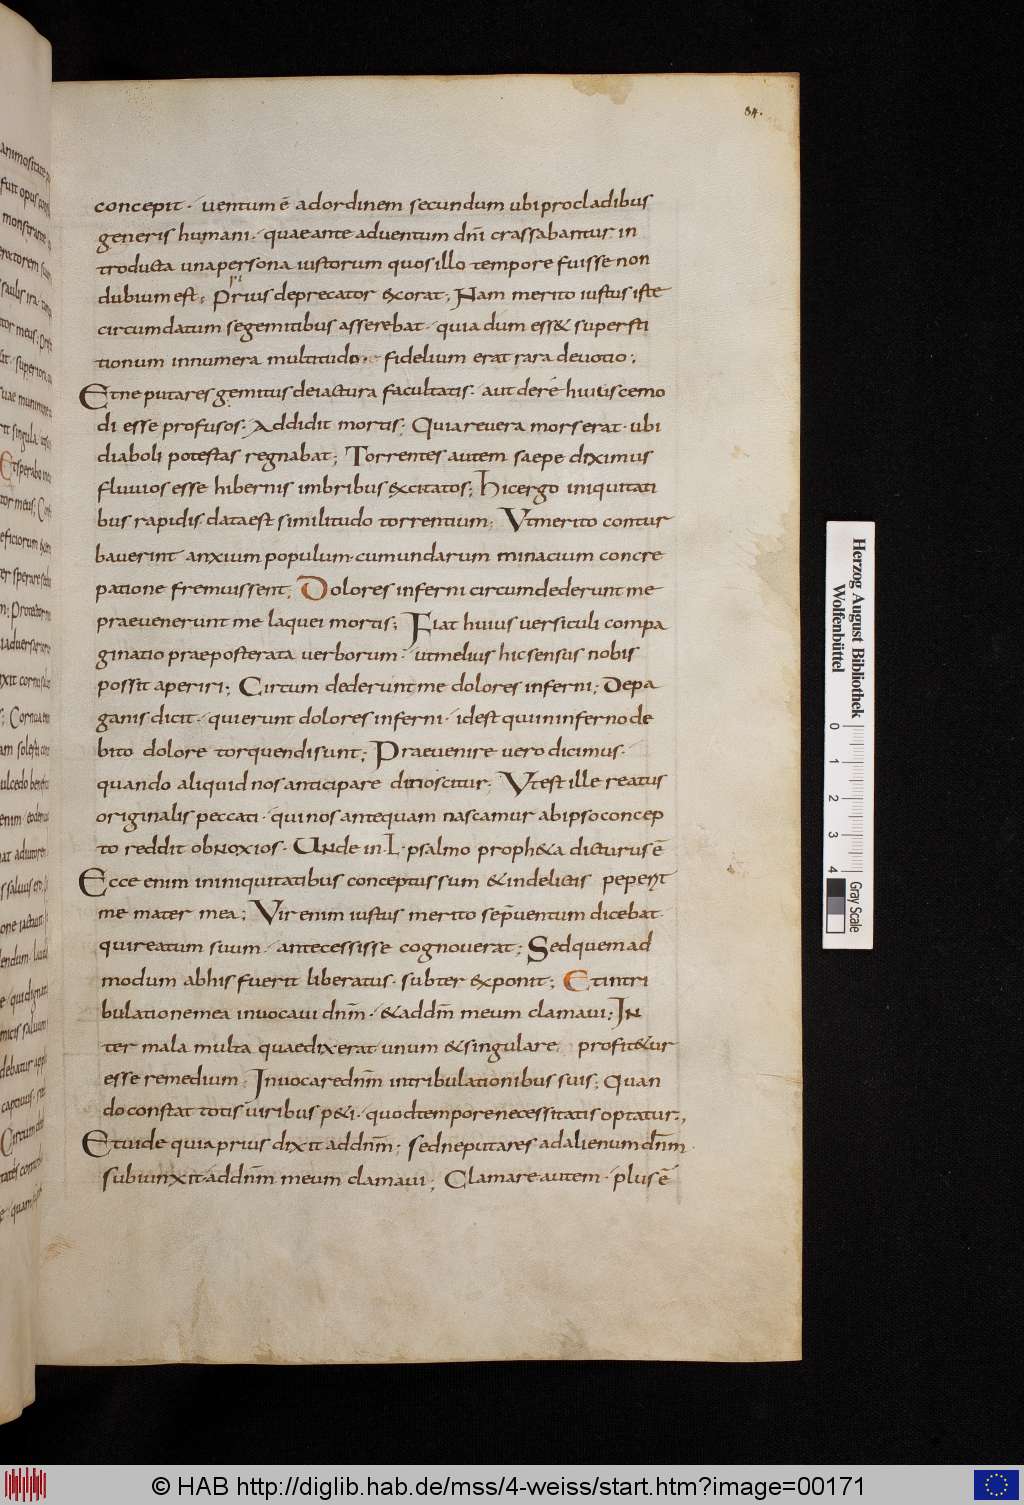 84.
concepit · uentum ē adordinem secundum ubi procladibus
generis humani · quae ante aduentum dñi crassabantur in
troducta una persona iustorum quos illo tempore fuisse non
dubium est; pri Prius deprecator & exorat; Nam merito iustus iste
circumdatum se gemitibus asserebat · quia dum ess& supersti
tionum innumera multitudo · fidelium erat rara deuotio;
Et ne putares gemitus de iactura facultatis · aut de re huiuscemo
di esse profusos · Addidit mortis; Quia reuera mors erat · ubi
diaboli potestas regnabat; Torrentes autem saepe diximus
fluuios esse hibernis imbribus excitatos; hic ergo iniquitati
bus rapidis data est similitudo torrentium; Ut merito contur
bauerint anxium populum · cum undarum minacium concre
patione fremuissent; Dolores inferni circumdederunt me
praeuenerunt me laquei mortis; Fiat huius uersiculi compa
ginatio praeposterata uerborum · ut melius hic sensus nobis
possit aperiri; Circum dederunt me dolores inferni; De pa
ganis dicit · qui erunt dolores inferni · id est qui in inferno de
bito dolore torquendi sunt; Praeuenire uero dicimus ·
quando aliquid nos anticipare dinoscitur; Ut est ille reatus
originalis peccati · qui nos antequam nascamur ab ipso concep
to reddit obnoxios · Unde in · L · psalmo proph&a dicturus ē
Ecce enim in iniquitatibus conceptus sum & in delictis peperit
me mater mea; Vir enim iustus merito se p̄uentum dicebat ·
qui reatum suum · antecessisse cognouerat; Sed quemad
modum ab his fuerit liberatus · subter exponit; Et in tri
bulatione mea inuocaui dñm · & ad dñm meum clamaui; In
ter mala multa quae dixerat unum & singulare profit&ur
esse remedium Inuocare dñm in tribulationibus suis; Quan
do constat totis uiribus p&i · quod tempore necessitatis optatur;
Et uide quia prius dixit ad dñm; sed ne putares ad alienum dñm ·
subiunxit · ad dñm meum clamaui; Clamare autem · plus ē
Herzog August Bibliothek
Wolfenbüttel
0 1 2 3 4
Gray Scale
© HAB http://diglib.hab.de/mss/4-weiss/start.htm?image=00171